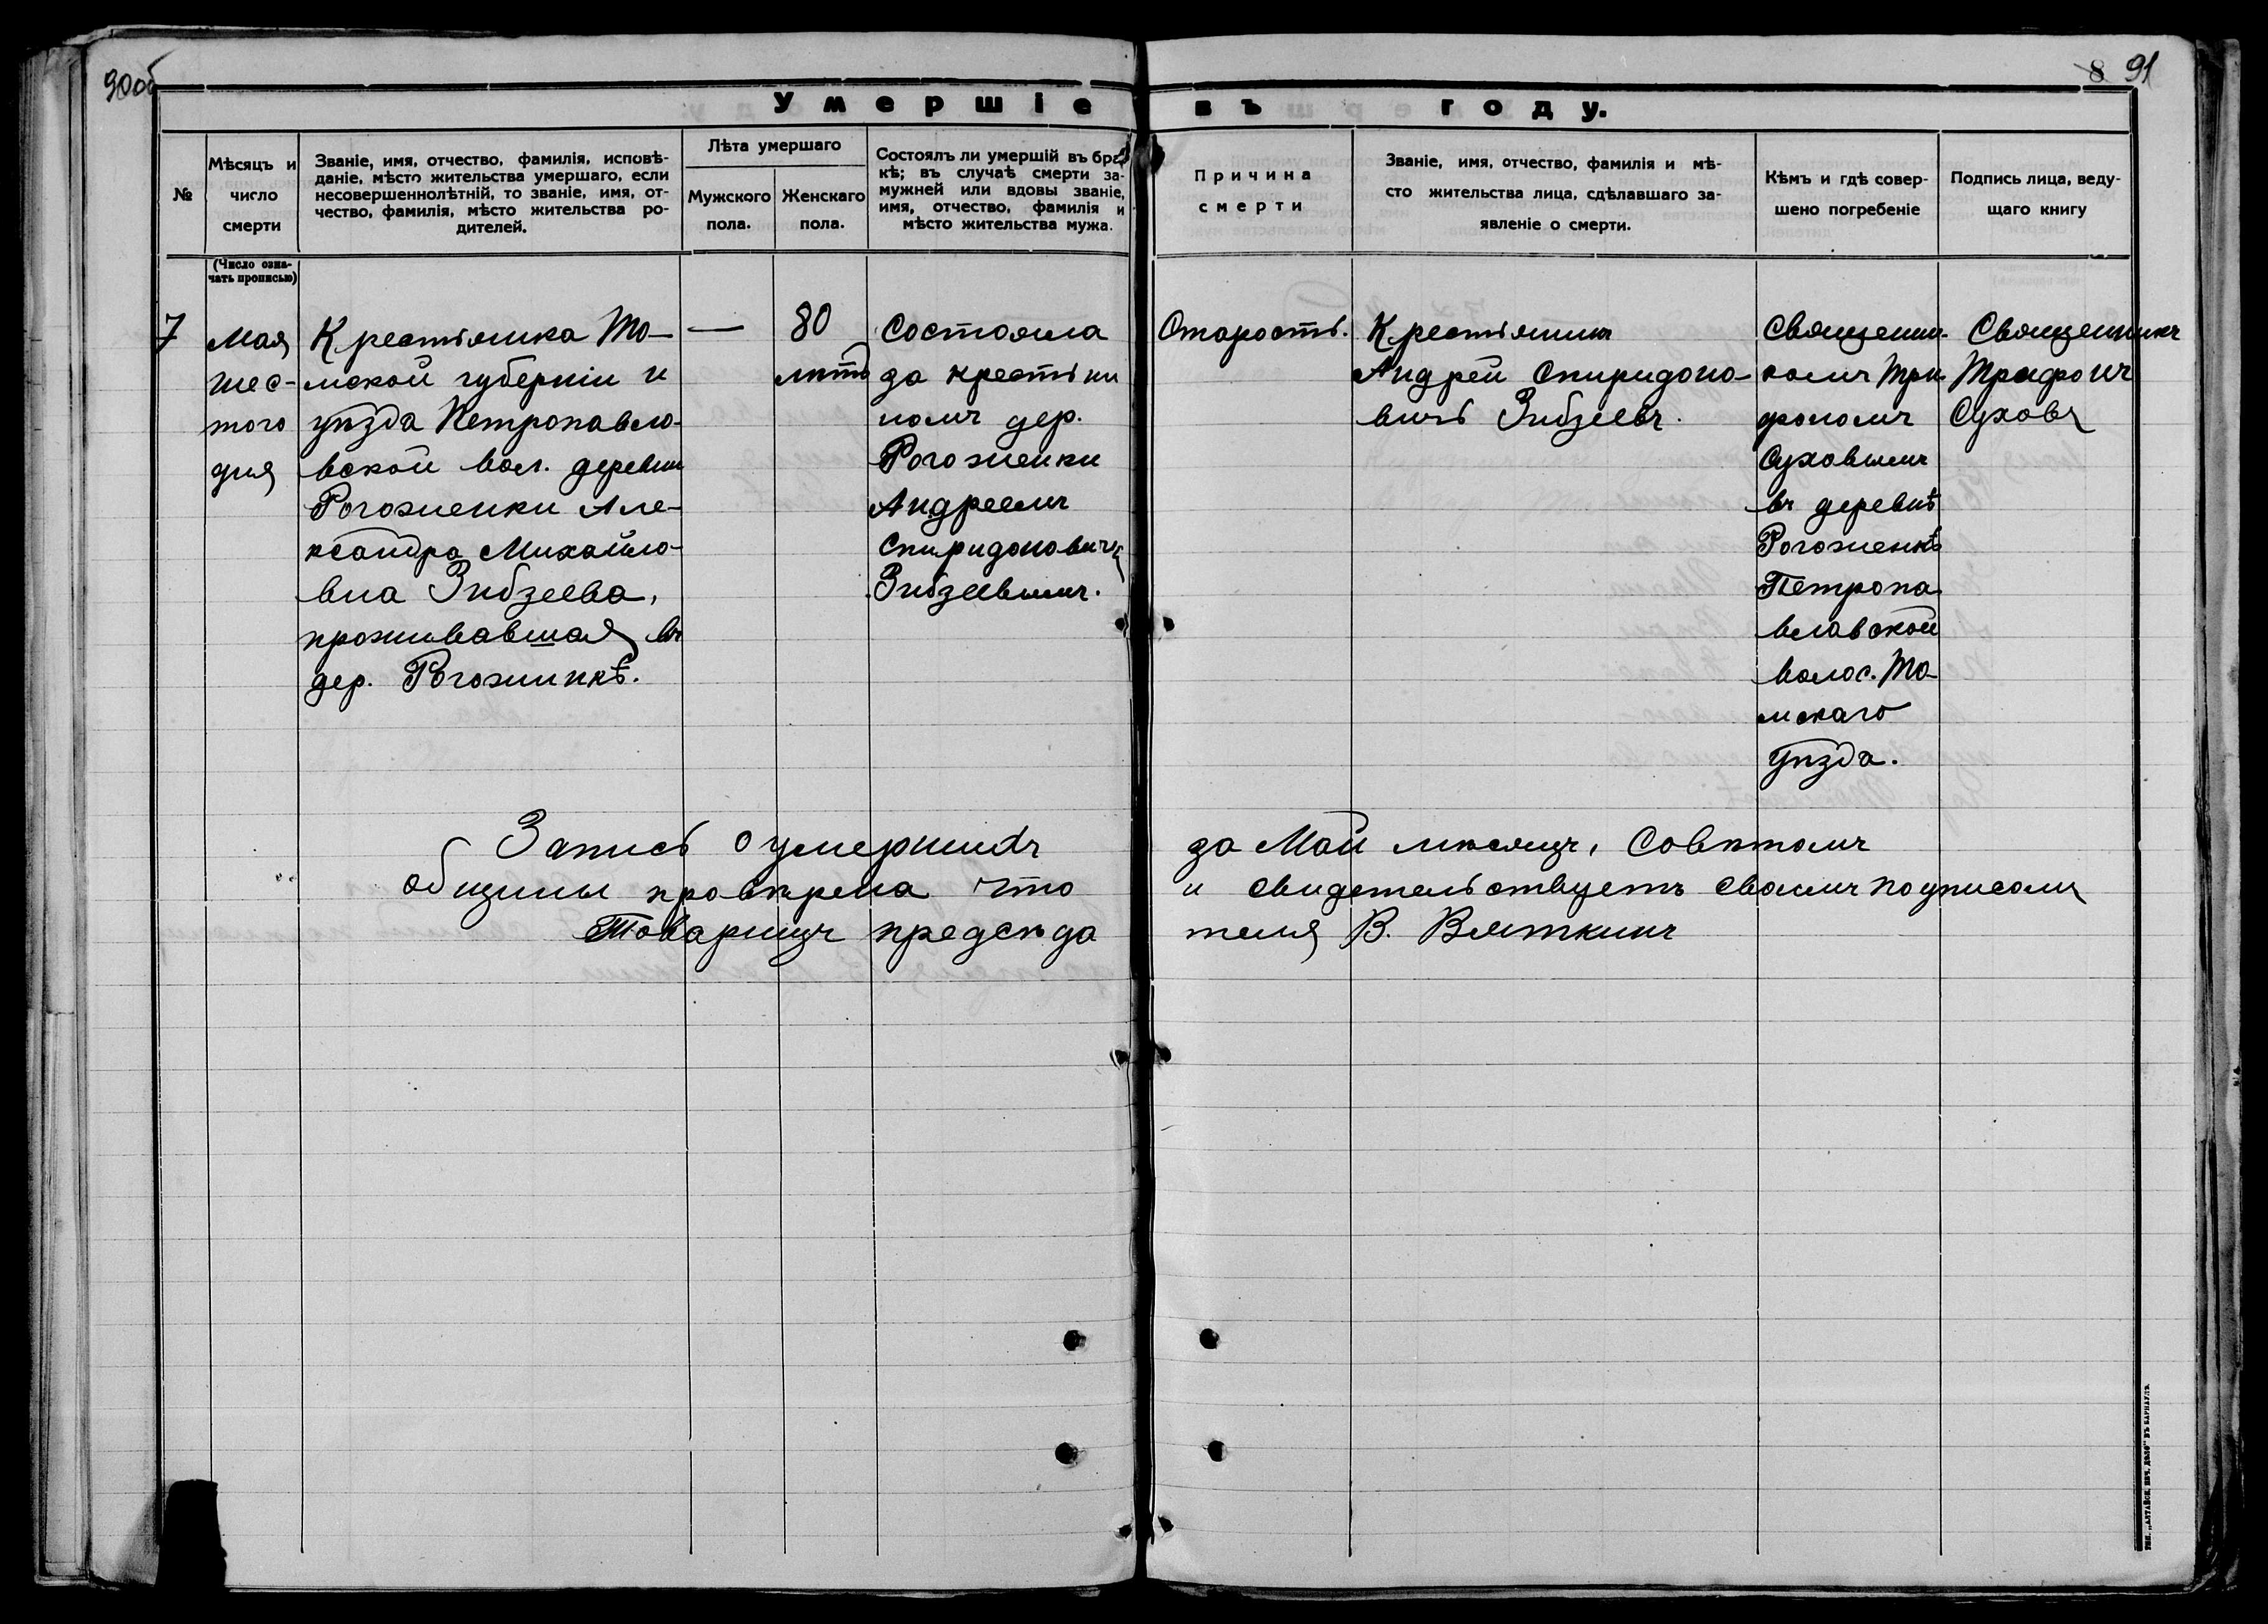 90об
8 91
Умершіе въ году.
№
Мѣсяцъ и
число
смерти
(Число озна-
чать прописью)
Званіе, имя, отчество, фамилія, исповѣ-
даніе, мѣсто жительства умершаго, если
несовершеннолѣтній, то званіе, имя, от-
чество, фамилія, мѣсто жительства ро-
дителей.
Лѣта умершаго
Мужского
пола.
Женскаго
пола.
Состоялъ ли умершій въ бра-
кѣ; въ случаѣ смерти за-
мужней или вдовы званіе,
имя, отчество, фамилія и
мѣсто жительства мужа.
Причина
смерти
Званіе, имя, отчество, фамилія и мѣ-
сто жительства лица, сдѣлавшаго за-
явленіе о смерти.
Кѣмъ и гдѣ совер-
шено погребеніе
Подпись лица, веду-
щаго книгу
7
Мая
шес-
того
дня
Крестьянка То-
мской губерніи и
уѣзда Петропавло-
вской вол. деревни
Рогоженки Але-
ксандра Михайло-
вна Зибзеева,
проживавшая въ
дер. Рогожинкѣ.
—
80
лѣтъ
Состояла
за крестьни
номъ дер.
Рогоженки
Андреемъ
Спиридоновичъ
Зибзеевымъ.
Старость.
Крестьянин
Андрей Спиридоно-
вичъ Зибзеевъ.
Священни-
комъ Три-
фономъ
Суховымъ
въ деревнѣ
Рогоженкѣ
Петропа-
влавской
волос. То-
мскаго
уѣзда.
Священникъ
Трифонъ
Суховъ
Запись о умершихъ за Май мѣсяцъ, Совѣтомъ
общины провѣрена что и свидетельствуетъ своимъ подписомъ
Товарищъ председателя В. Вяткинъ
ТИП. „АЛТАЙСК. ПЕЧ. ДѢЛО" ВЪ БАРНАУЛѢ.